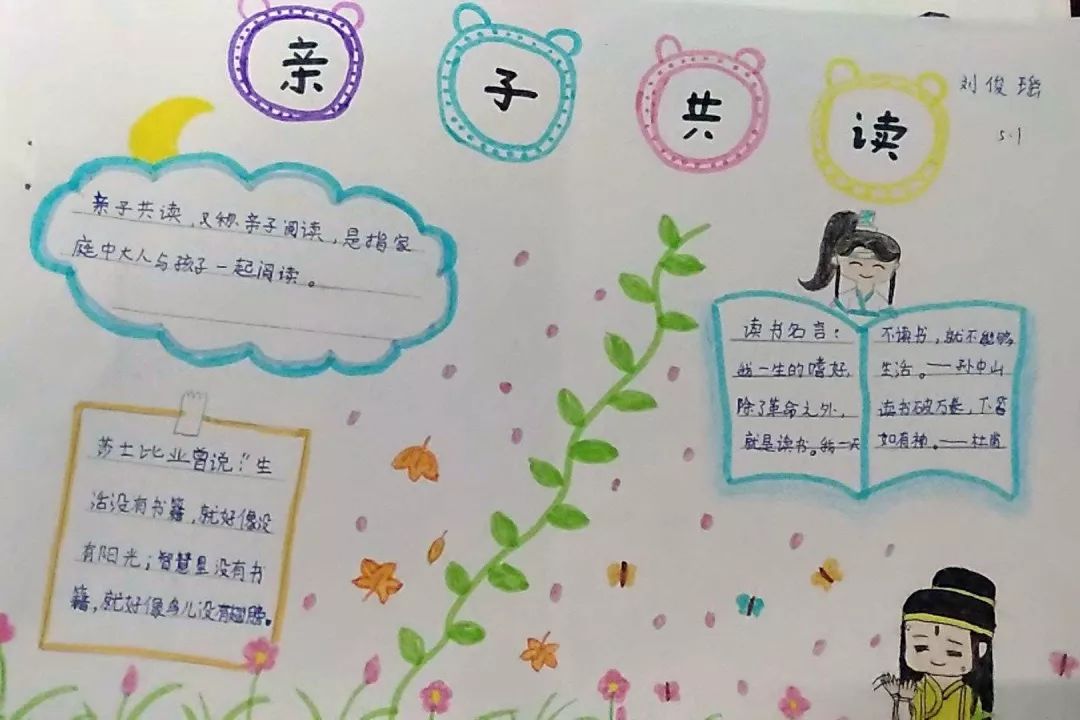 亲子共读
刘俊瑶
5.1
亲子共读，又称亲子阅读，是指家
庭中大人与孩子一起阅读。
读书名言：
我一生的嗜好，
除了革命之外，
就是读书。我一天
不读书，就不能够
生活。——孙中山
读书破万卷，下笔
如有神。——杜甫
莎士比亚曾说：“生
活没有书籍，就好像没
有阳光；智慧里没有书
籍，就好像鸟儿没有翅膀。